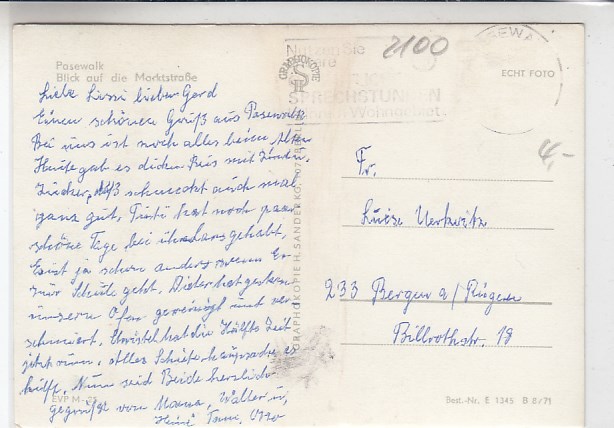 Pasewalk
Blick auf die Marktstraße
Liebe Lissi lieber Gerd
Einen schönen Gruß aus Pasewalk
Bei uns ist noch alles beim Alten
Heute gab es dicken Reis mit Zimt u.
Zucker, schmeckt auch mal
ganz gut. hat noch paar
schöne Tage bei uns gehabt,
Es ist ja schon anders wenn Er
zur Schule geht. Dieter hat gestern
unseren Ofen gereinigt und ver
schmiert. Christel hat die Hälfte Zeit
jetzt rum, alles
hilft. Nun seid Beide herzlich
gegrüßt von Mama, Walter u,
Otto
Nutzen Sie
SPRECHSTUNDEN
Wohngebiet.
2100
PASEWA
ECHT FOTO
4,-
GRAPHOKOPIE H. SANDER KG, BERLIN
Fr.
Luise
233 Bergen a/Rügen
Billrothstr. 18
EVP M -,25
Best.-Nr. E 1345 B 8/71